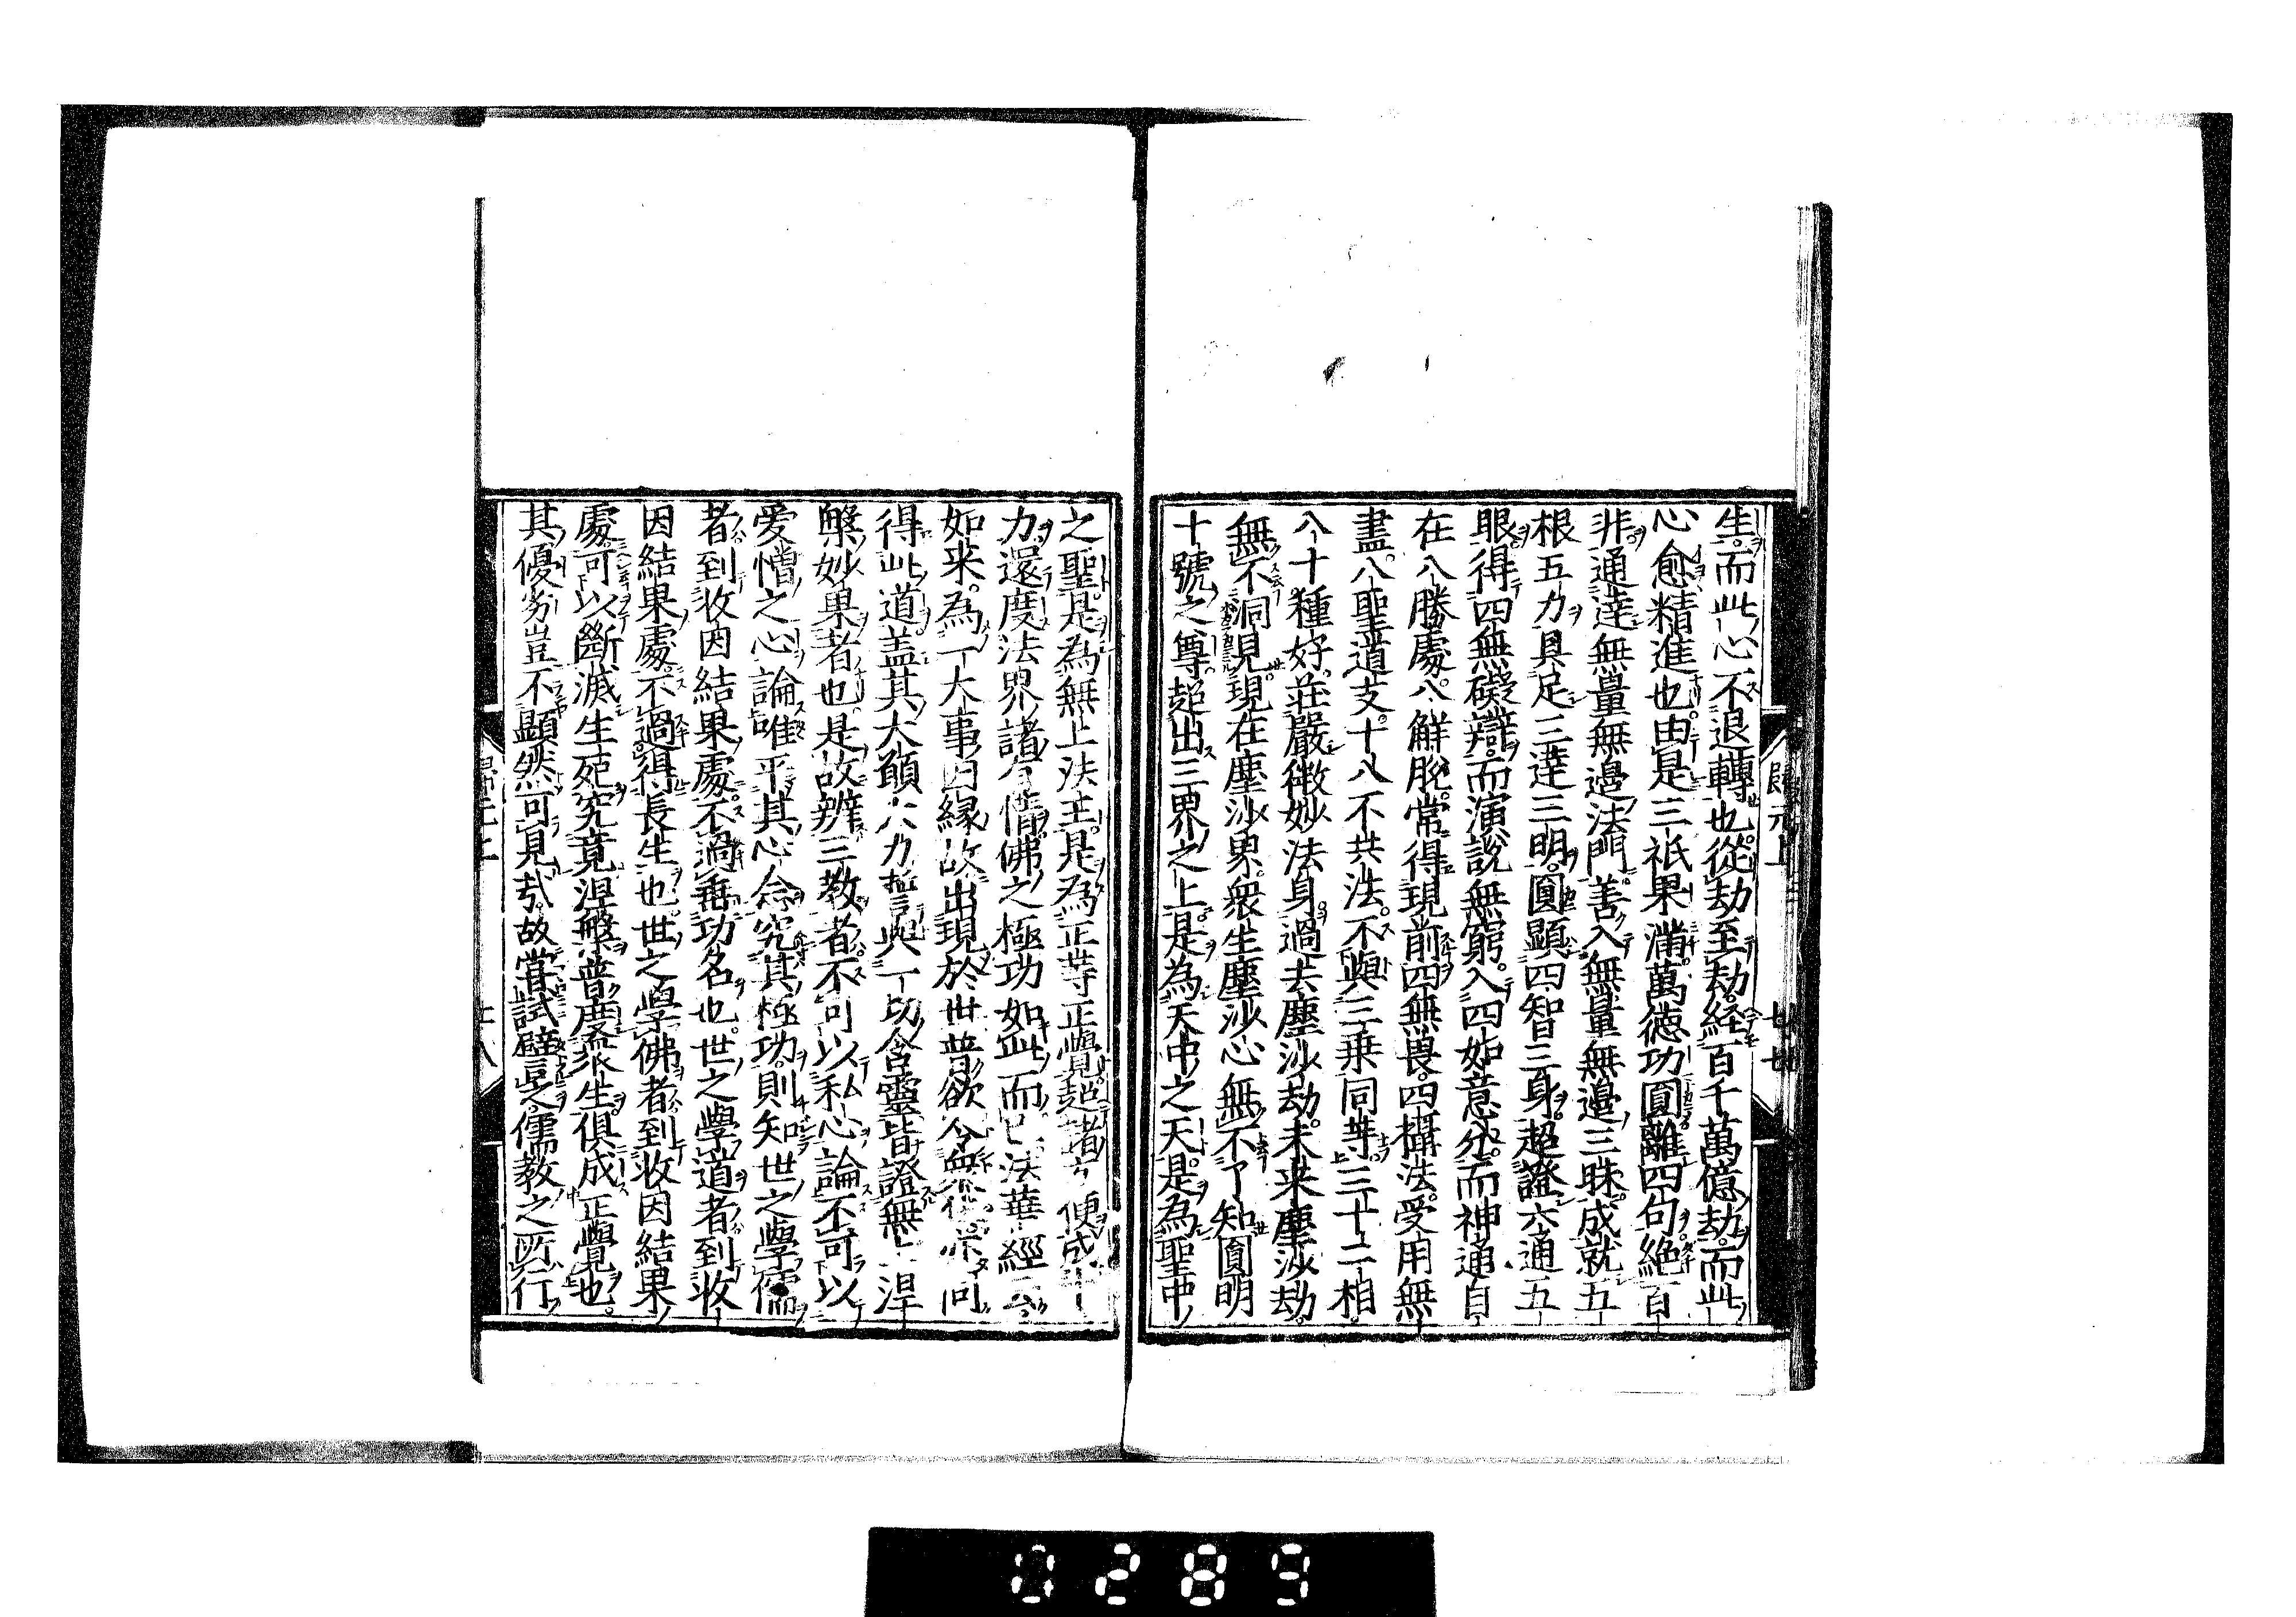 生。而此心不退轉也。從劫至劫。経百千萬億劫。而此
心愈精進也。由是三祇果滿。萬徳功圓。離四句。絶百
非。通達無量無邊法門。善入無量無邊三昧。成就五
根五力。具足三達三明。圓顯四智三身。超證六通五
眼。得四無礙辯。而演説無窮。入四如意分。而神通自
在。八勝處。八解脫。常得現前。四無畏。四攝法。受用無
盡。八聖道支。十八不共法。不與三乗同等。三十二相。
八十種好。荘嚴微妙法身。過去塵沙劫。未来塵沙劫。
無不洞見。現在塵沙界。衆生塵沙心。無不了知。圓明
十號之尊。超出三界之上。是為天中之天。是為聖中
之聖。是為無上法王。是為正等正覺。超諸方便成十
力。還度法界諸有情。佛之極功如此而已。法華經云。
如来。為一大事因縁故出現於世。普欲令衆
得此道。盖其大願大力誓與一切含靈。皆證無上涅
槃妙果者也。是故辨三教者。不可以私心論。不可以
愛憎之心論。唯平其心念。究其極功。則知世之學儒
者。到收因結果處。不過垂功名也。世之學道者。到收
因結果處。不過得長生也。世之學佛者。到收因結果
處。可以斷滅生死。究竟涅槃。普度衆生。俱成正覺也。
其優劣豈不顯然可見哉。故嘗試譬之。儒教之所行
歸元上
0289